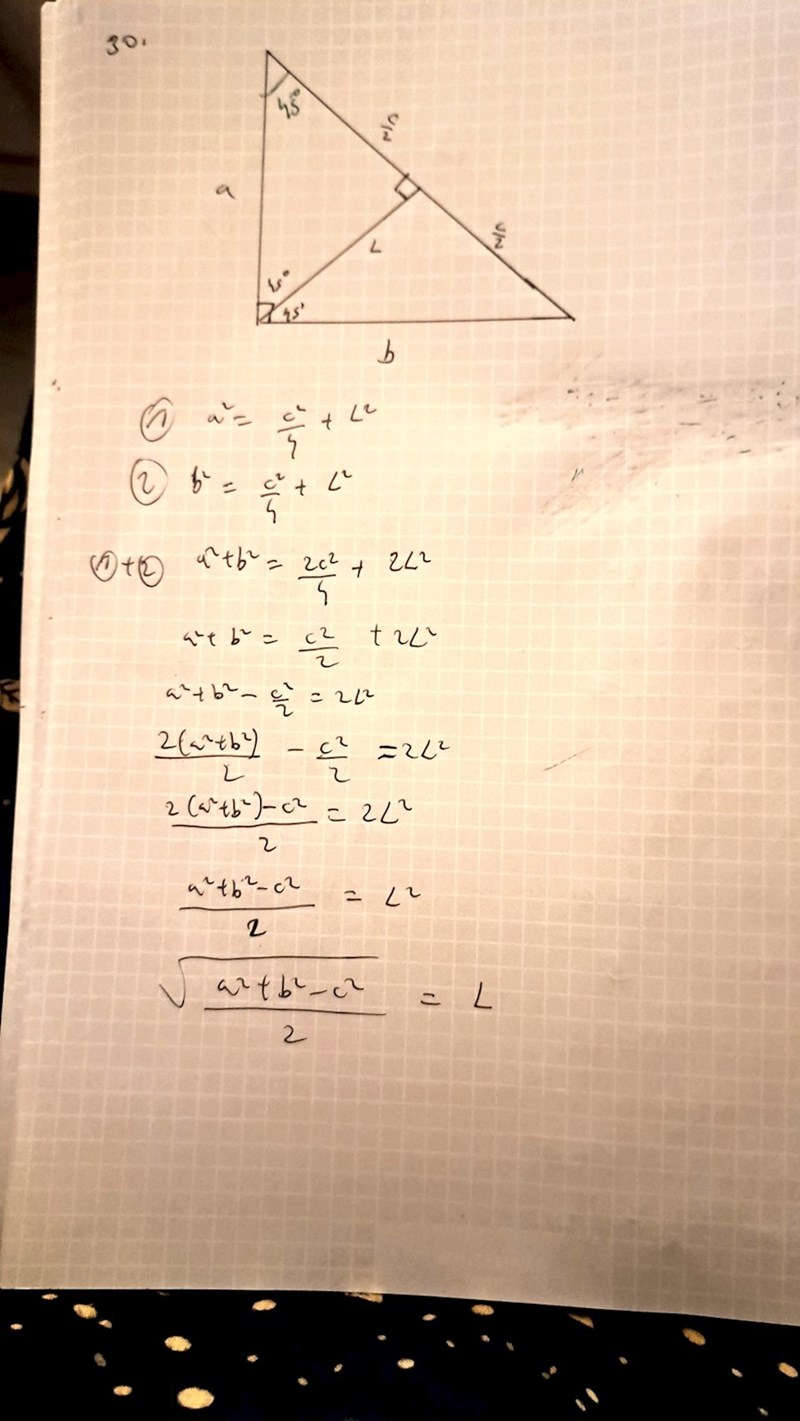 30.
45°
c/2
a
c/2
L
45°
45°
b
① a² = c²/4 + L²
② b² = c²/4 + L²
①+② a²+b² = 2c²/4 + 2L²
a²+b² = c²/2 + 2L²
a²+b² - c²/2 = 2L²
2(a²+b²)/2 - c²/2 = 2L²
2(a²+b²)-c²/2 = 2L²
a²+b²-c²/2 = L²
√(a²+b²-c²/2) = L